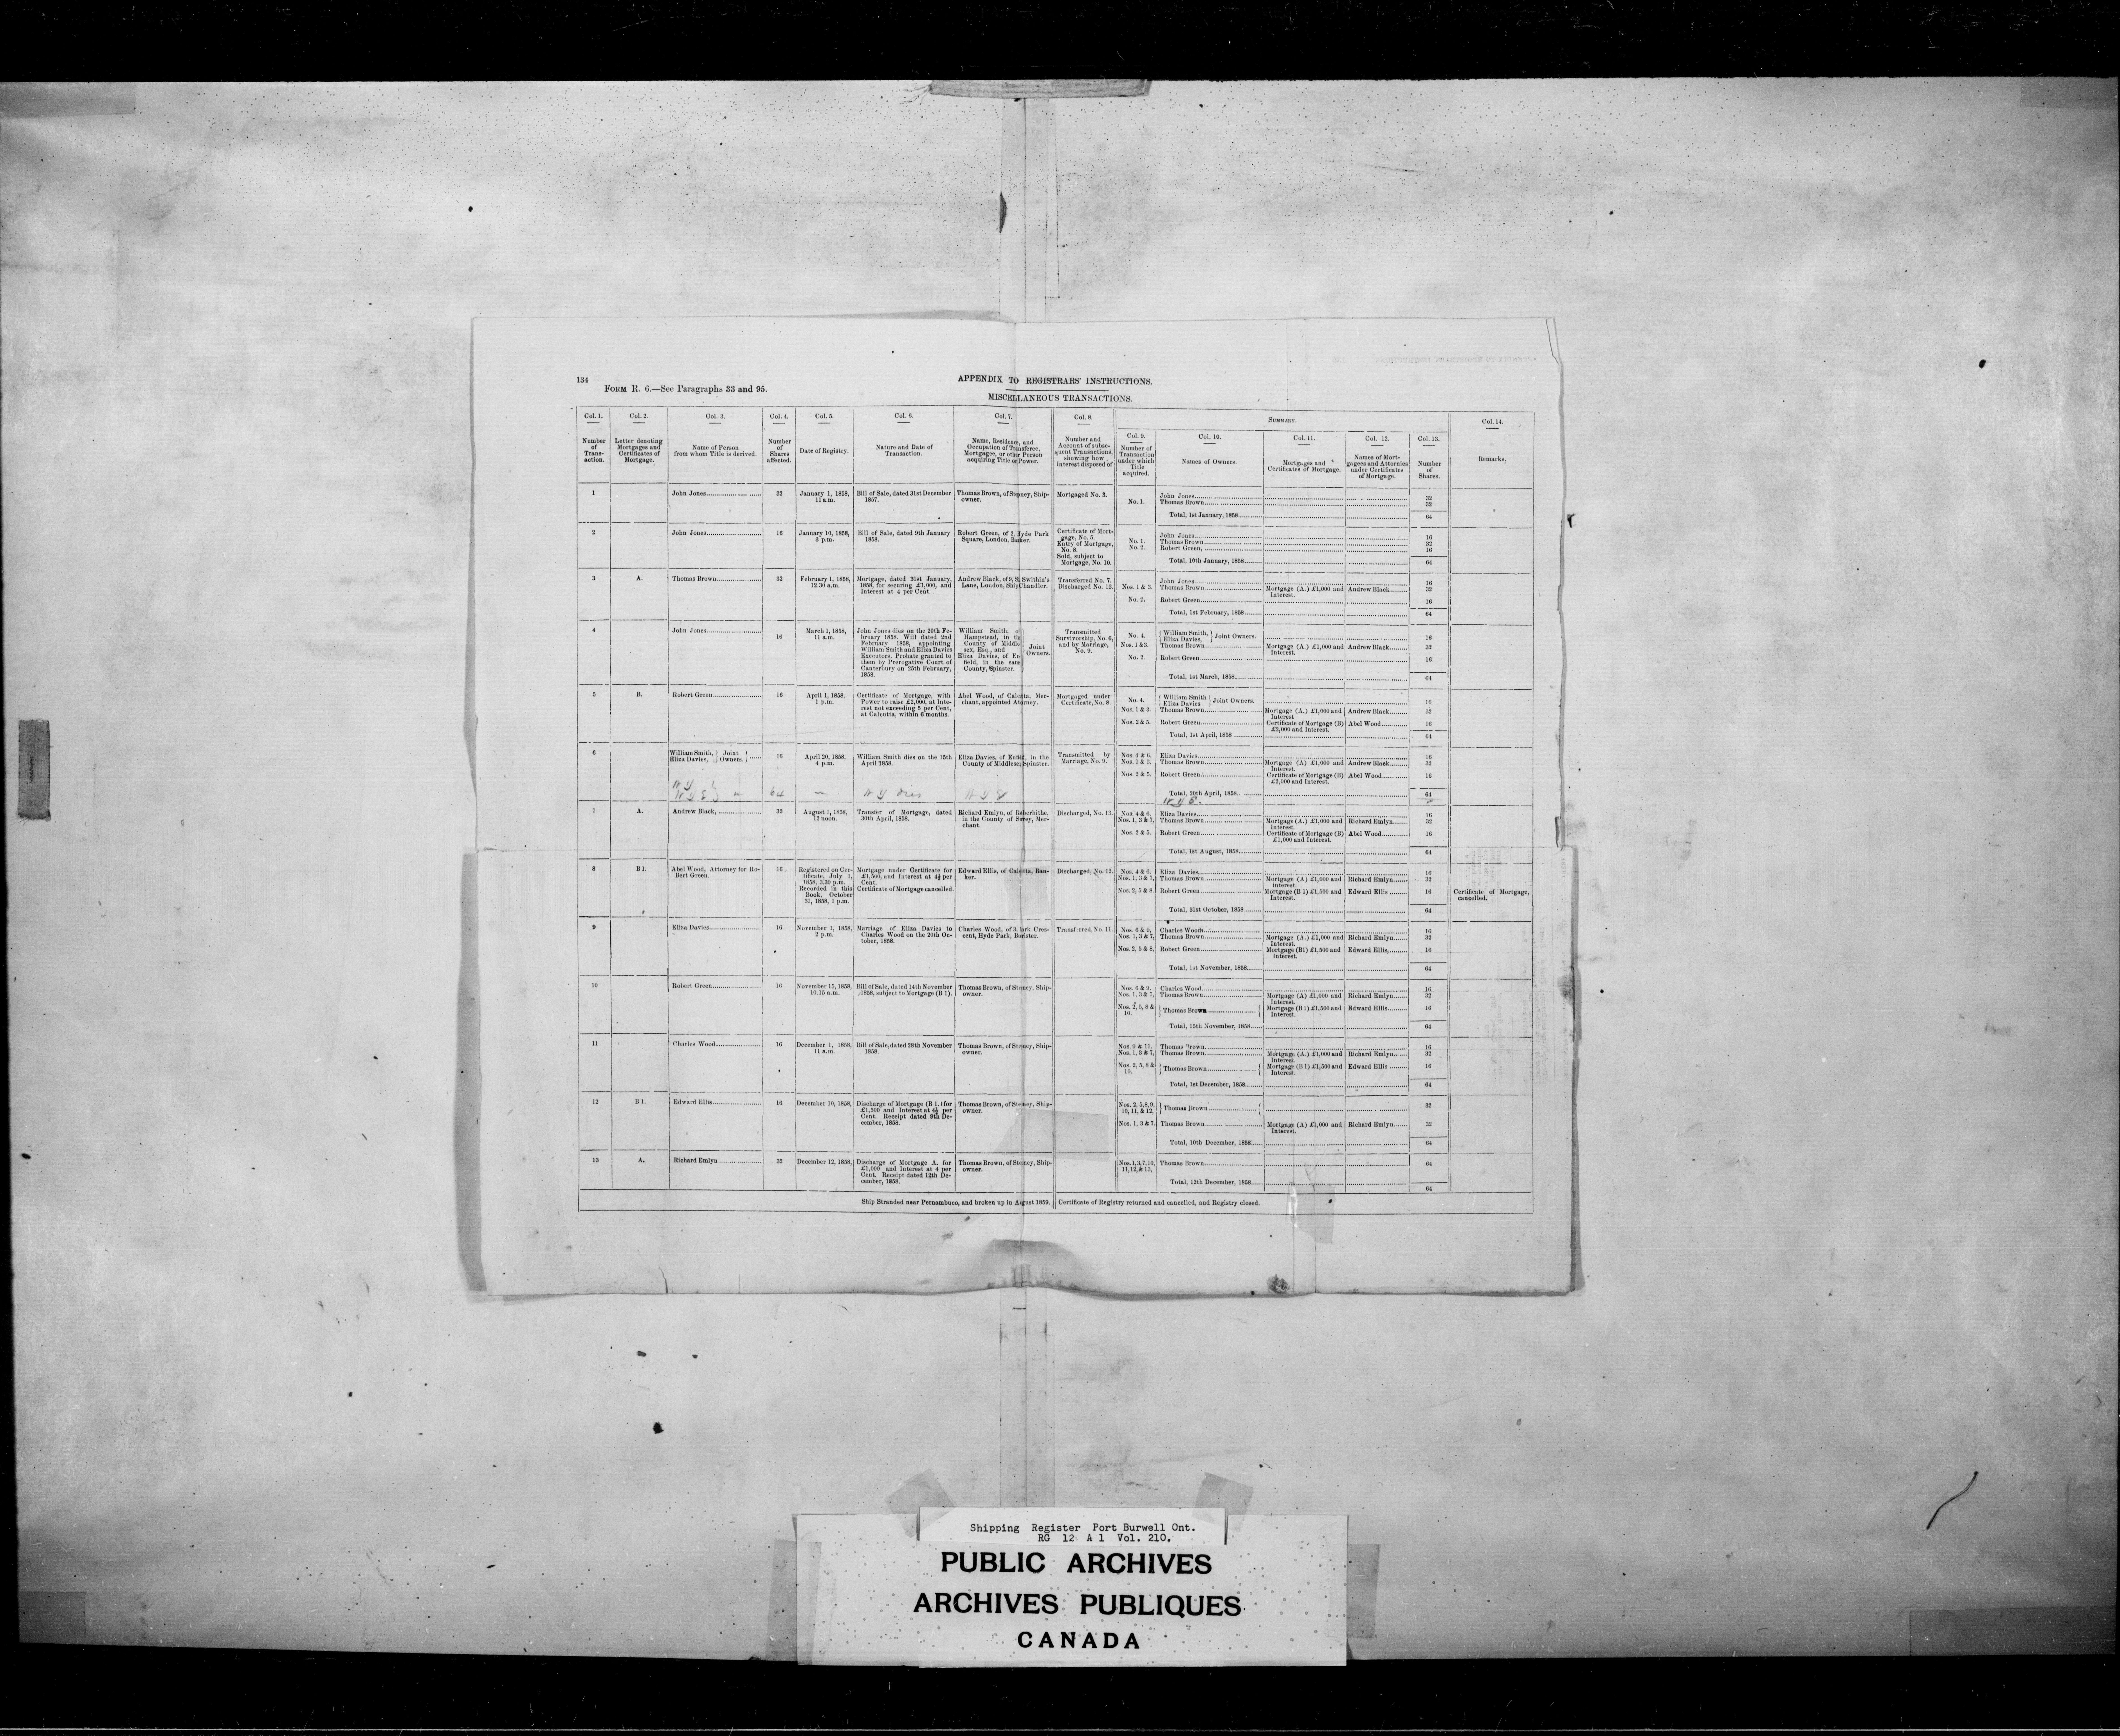 134
APPENDIX TO REGISTRARS' INSTRUCTIONS.
FORM R. 6.—See Paragraphs 33 and 95.
MISCELLANEOUS TRANSACTIONS.
Col. 1. Number of Transaction.
Col. 2. Letter denoting Mortgages and Certificates of Mortgage.
Col. 3. Name of Person from whom Title is derived.
Col. 4. Number of Shares affected.
Col. 5. Date of Registry.
Col. 6. Nature and Date of Transaction.
Col. 7. Name, Residence, and Occupation of Transferee, Mortgagee, or other Person acquiring Title or Power.
Col. 8. Number and Account of subsequent Transactions, showing how Interest disposed of
SUMMARY.
Col. 9. Number of Transaction under which Title acquired.
Col. 10. Names of Owners.
Col. 11. Mortgages and Certificates of Mortgage.
Col. 12. Names of Mortgagees and Attornies under Certificates of Mortgage.
Col. 13. Number of Shares.
Col. 14. Remarks.
1 John Jones 32 January 1, 1858, 11 a.m. Bill of Sale, dated 31st December 1857. Thomas Brown, of Stepney, Ship-owner. Mortgaged No. 3.
John Jones 32
No. 1. Thomas Brown 32
Total, 1st January, 1858 64
2 John Jones 16 January 10, 1858, 3 p.m. Bill of Sale, dated 9th January 1858. Robert Green, of 2, Hyde Park Square, London, Banker. Certificate of Mortgage, No. 5. Entry of Mortgage, No. 8. Sold, subject to Mortgage, No. 10.
John Jones 16
No. 1. Thomas Brown 32
No. 2. Robert Green, 16
Total, 10th January, 1858 64
3 A. Thomas Brown 32 February 1, 1858, 12.30 a.m. Mortgage, dated 31st January, 1858, for securing £1,000, and Interest at 4 per Cent. Andrew Black, of 9, St. Swithin's Lane, London, Ship Chandler. Transferred No. 7. Discharged No. 13.
John Jones 16
Nos. 1 & 3. Thomas Brown Mortgage (A.) £1,000 and Interest. Andrew Black 32
No. 2. Robert Green 16
Total, 1st February, 1858 64
4 John Jones 16 March 1, 1858, 11 a.m. John Jones dies on the 20th February 1858. Will dated 2nd February 1858, appointing William Smith and Eliza Davies Executors. Probate granted to them by Prerogative Court of Canterbury on 25th February, 1858. William Smith, of Hampstead, in the County of Middlesex, Esq., and Eliza Davies, of Enfield, in the same County, Spinster. Joint Owners. Transmitted Survivorship, No. 6, and by Marriage, No. 9.
No. 4. William Smith, Eliza Davies, Joint Owners. 16
Nos. 1 & 3. Thomas Brown Mortgage (A.) £1,000 and Interest. Andrew Black 32
No. 2. Robert Green 16
Total, 1st March, 1858 64
5 B. Robert Green 16 April 1, 1858, 1 p.m. Certificate of Mortgage, with Power to raise £2,000, at Interest not exceeding 5 per Cent, at Calcutta, within 6 months. Abel Wood, of Calcutta, Merchant, appointed Attorney. Mortgaged under Certificate, No. 8.
No. 4. William Smith Eliza Davies Joint Owners. 16
Nos. 1 & 3. Thomas Brown Mortgage (A.) £1,000 and Interest Andrew Black 32
Nos. 2 & 5. Robert Green Certificate of Mortgage (B) £2,000 and Interest. Abel Wood 16
Total, 1st April, 1858 64
6 William Smith, Eliza Davies, Joint Owners. 16 April 20, 1858, 4 p.m. William Smith dies on the 15th April 1858. Eliza Davies, of Enfield, in the County of Middlesex, Spinster. Transmitted by Marriage, No. 9.
Nos. 4 & 6. Eliza Davies 16
Nos. 1 & 3. Thomas Brown Mortgage (A) £1,000 and Interest. Andrew Black 32
Nos. 2 & 5. Robert Green Certificate of Mortgage (B) £2,000 and Interest. Abel Wood 16
Total, 20th April, 1858 64
64 dies
7 A. Andrew Black, 32 August 1, 1858, 12 noon. Transfer of Mortgage, dated 30th April, 1858. Richard Emlyn, of Rotherhithe, in the County of Surrey, Merchant. Discharged, No. 13.
Nos. 4 & 6. Eliza Davies 16
Nos. 1, 3 & 7, Thomas Brown Mortgage (A.) £1,000 and Interest. Richard Emlyn 32
Nos. 2 & 5. Robert Green Certificate of Mortgage (B) £1,000 and Interest. Abel Wood 16
Total, 1st August, 1858 64
8 B 1. Abel Wood, Attorney for Robert Green. 16 Registered on Certificate, July 1, 1858, 3.30 p.m. Recorded in this Book, October 31, 1858, 1 p.m. Mortgage under Certificate for £1,500, and Interest at 4½ per Cent. Certificate of Mortgage cancelled. Edward Ellis, of Calcutta, Banker. Discharged, No. 12.
Nos. 4 & 6. Eliza Davies, 16
Nos. 1, 3 & 7, Thomas Brown Mortgage (A) £1,000 and Interest. Richard Emlyn 32
Nos. 2, 5 & 8. Robert Green Mortgage (B 1) £1,500 and Interest. Edward Ellis 16 Certificate of Mortgage, cancelled.
Total, 31st October, 1858 64
9 Eliza Davies 16 November 1, 1858, 2 p.m. Marriage of Eliza Davies to Charles Wood on the 20th October, 1858. Charles Wood, of 3, Park Crescent, Hyde Park, Barrister. Transferred, No. 11.
Nos. 6 & 9, Charles Wood 16
Nos. 1, 3 & 7, Thomas Brown Mortgage (A.) £1,000 and Interest. Richard Emlyn 32
Nos. 2, 5 & 8, Robert Green Mortgage (B1) £1,500 and Interest. Edward Ellis, 16
Total, 1st November, 1858 64
10 Robert Green 16 November 15, 1858, 10.15 a.m. Bill of Sale, dated 14th November 1858, subject to Mortgage (B 1). Thomas Brown, of Stepney, Ship-owner.
Nos. 6 & 9, Charles Wood 16
Nos. 1, 3 & 7, Thomas Brown Mortgage (A) £1,000 and Interest. Richard Emlyn 32
Nos. 2, 5, 8 & 10. Thomas Brown Mortgage (B 1) £1,500 and Interest. Edward Ellis 16
Total, 15th November, 1858 64
11 Charles Wood 16 December 1, 1858, 11 a.m. Bill of Sale, dated 28th November 1858. Thomas Brown, of Stepney, Ship-owner.
Nos. 9 & 11. Thomas Brown 16
Nos. 1, 3 & 7, Thomas Brown Mortgage (A.) £1,000 and Interest. Richard Emlyn 32
Nos. 2, 5, 8 & 10. Thomas Brown Mortgage (B 1) £1,500 and Interest. Edward Ellis 16
Total, 1st December, 1858 64
12 B 1. Edward Ellis 16 December 10, 1858, Discharge of Mortgage (B 1.) for £1,500 and Interest at 4½ per Cent. Receipt dated 9th December, 1858. Thomas Brown, of Stepney, Ship-owner.
Nos. 2, 5, 8, 9, 10, 11, & 12, Thomas Brown 32
Nos. 1, 3 & 7. Thomas Brown Mortgage (A) £1,000 and Interest. Richard Emlyn 32
Total, 10th December, 1858 64
13 A. Richard Emlyn 32 December 12, 1858, Discharge of Mortgage A. for £1,000 and Interest at 4 per Cent. Receipt dated 12th December, 1858. Thomas Brown, of Stepney, Ship-owner.
Nos. 1, 3, 7, 10, 11, 12, & 13, Thomas Brown 64
Total, 12th December, 1858 64
Ship Stranded near Pernambuco, and broken up in August 1859. Certificate of Registry returned and cancelled, and Registry closed.
Shipping Register Port Burwell Ont.
RG 12 A 1 Vol. 210.
PUBLIC ARCHIVES
ARCHIVES PUBLIQUES
CANADA